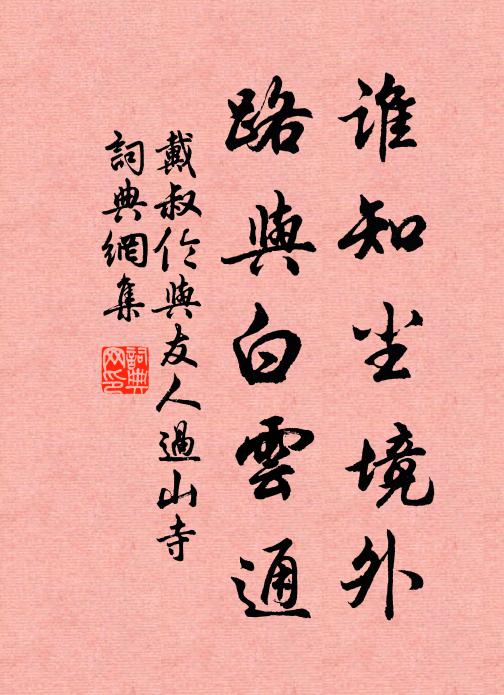 谁知尘境外
路與白雲通
戴叔伦與友人過山寺
詞典網集
詞典網印